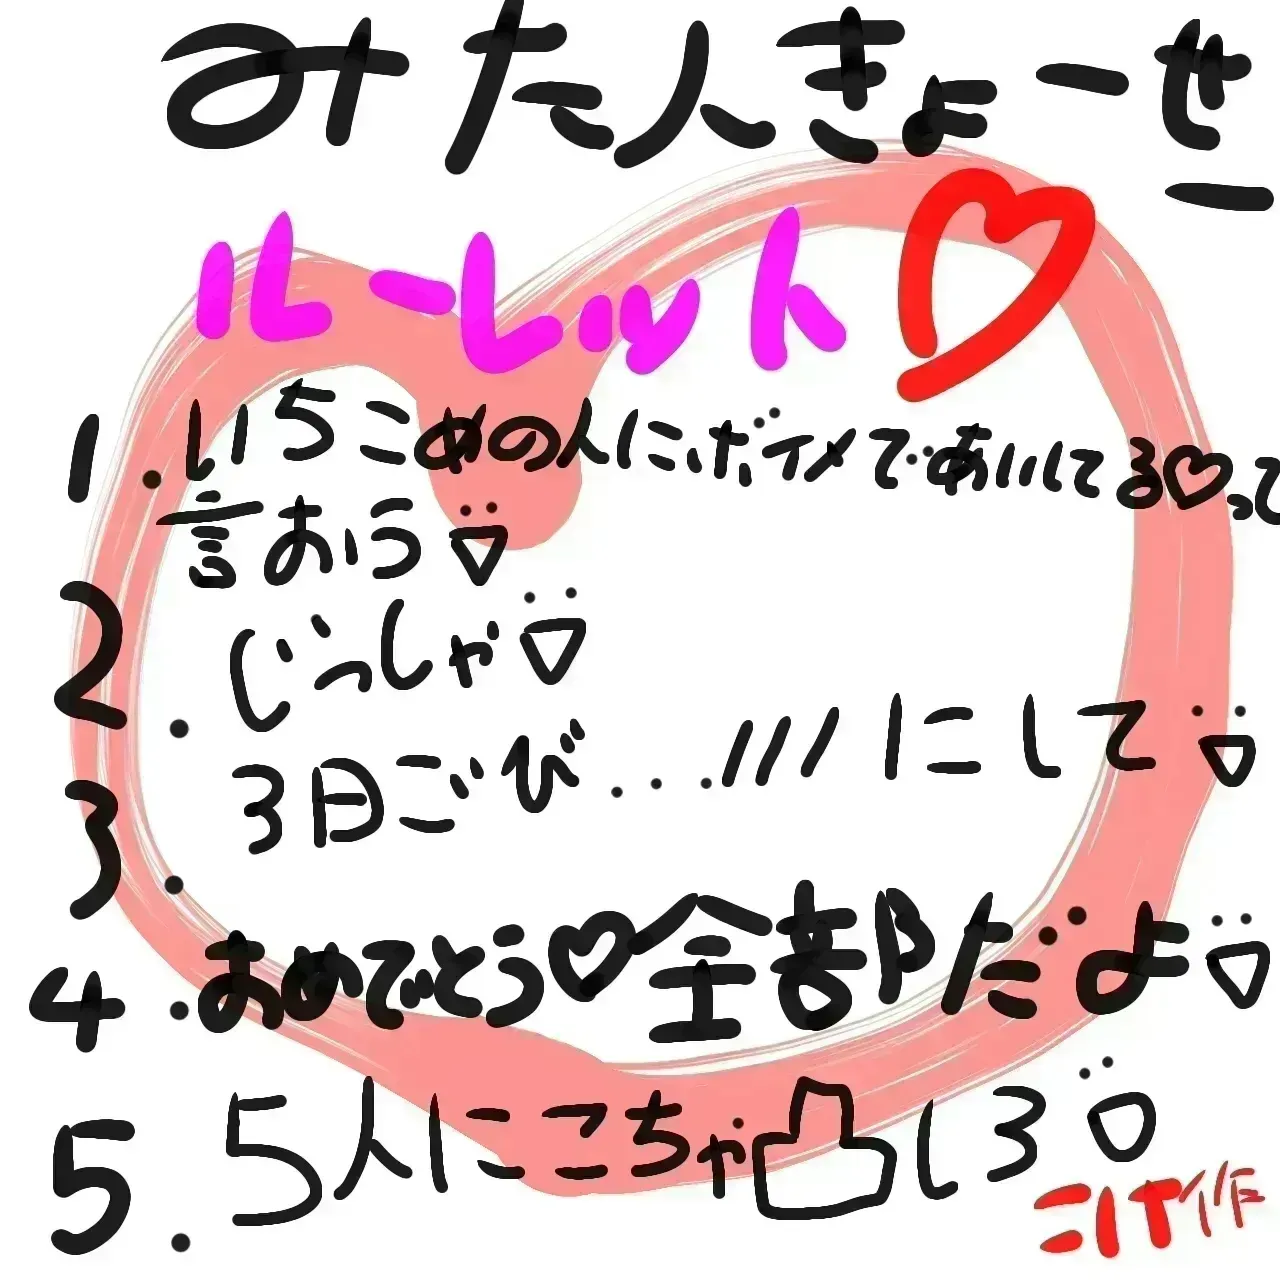 みた人きょーせー
ルーレット♡
1.いちこめの人にボイメであいしてる♡って
言おうӫ
2.じっしゃ
3.3日ごび...////にして
4.おめでとう♡全部だよ
5.5人にこちゃ凸しろ
作